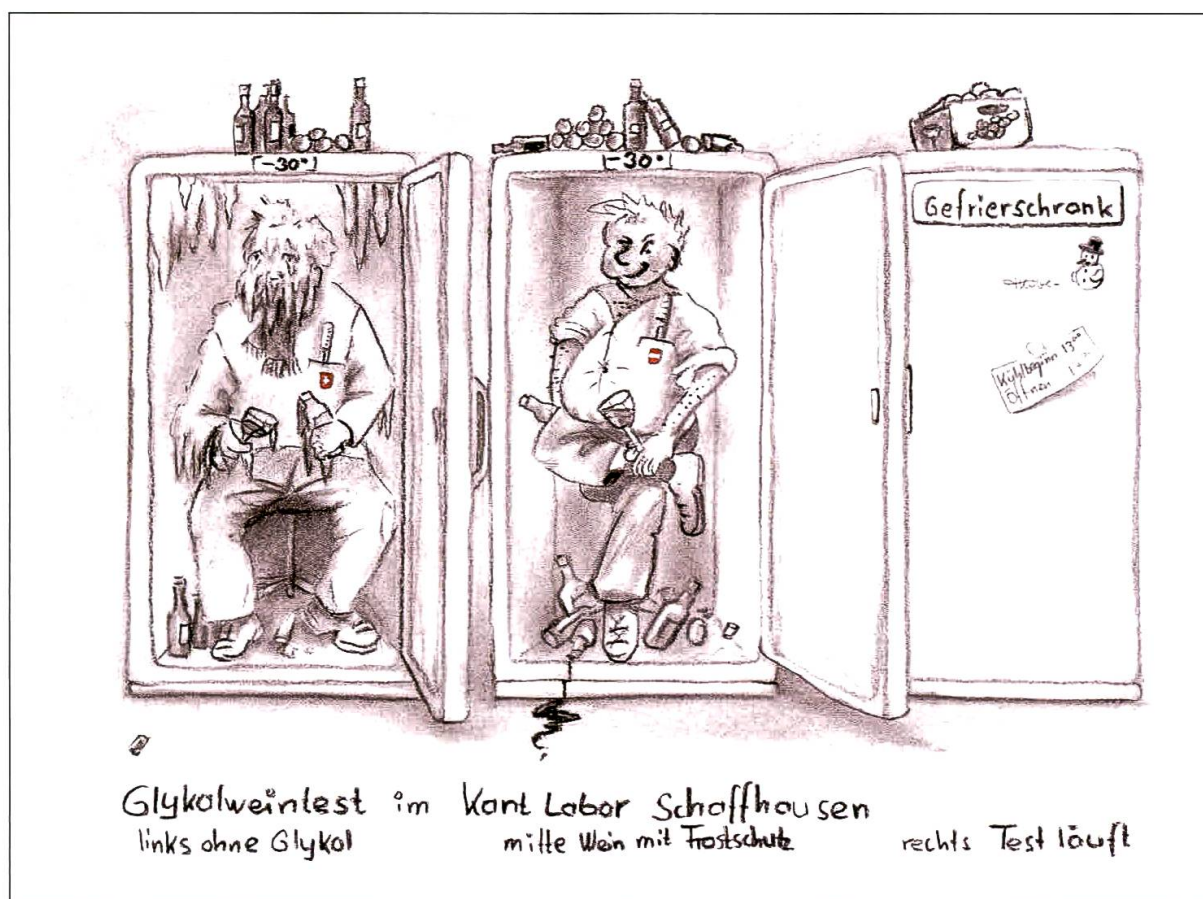 -30°
-30°
Gefrierschrank
Kühlbeginn 13⁰⁰
Öffnen
Glykolweintest im Kant Labor Schaffhausen
links ohne Glykol
mitte Wein mit Frostschutz
rechts Test läuft